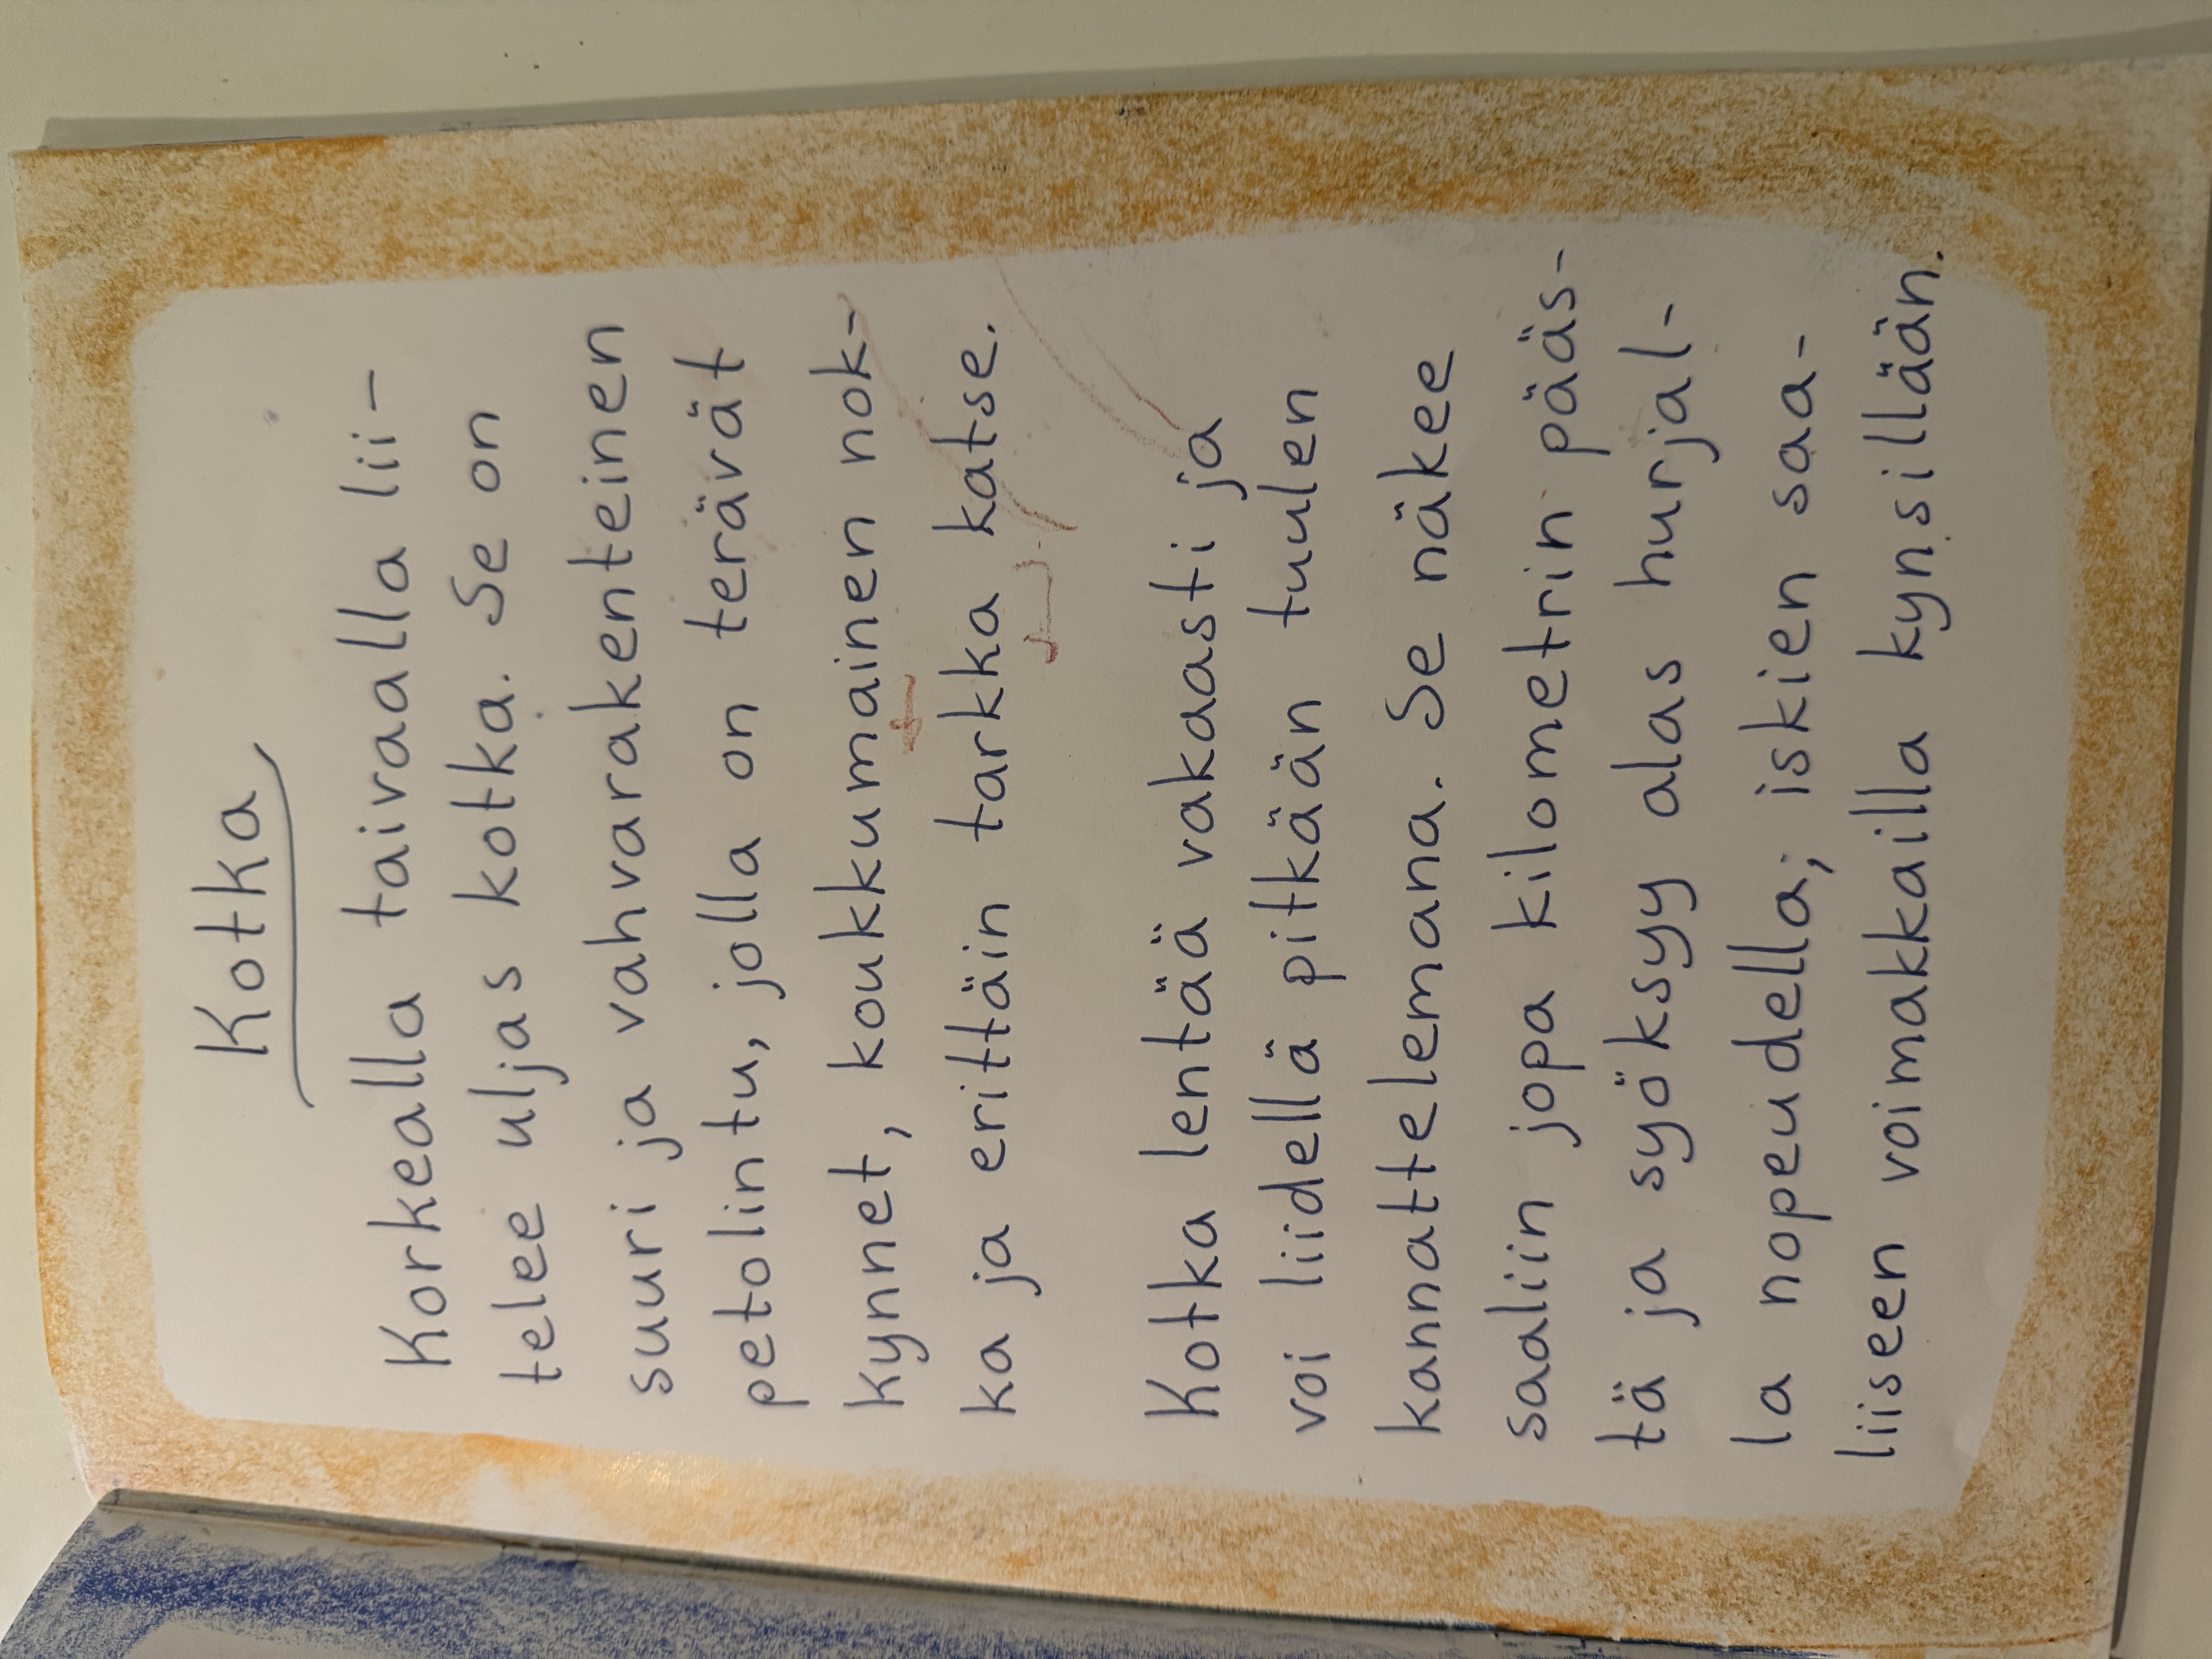 Kotka
Korkealla taivaalla lii-
telee uljas kotka. Se on
suuri ja vahvarakenteinen
petolintu, jolla on terävät
kynnet, koukkumainen nok-
ka ja erittäin tarkka katse.
Kotka lentää vakaasti ja
voi liidellä pitkään tuulen
kannattelemana. Se näkee
saaliin jopa kilometrin pääs-
tä ja syöksyy alas hurjal-
la nopeudella; iskien saa-
liiseen voimakkailla kynsillään.